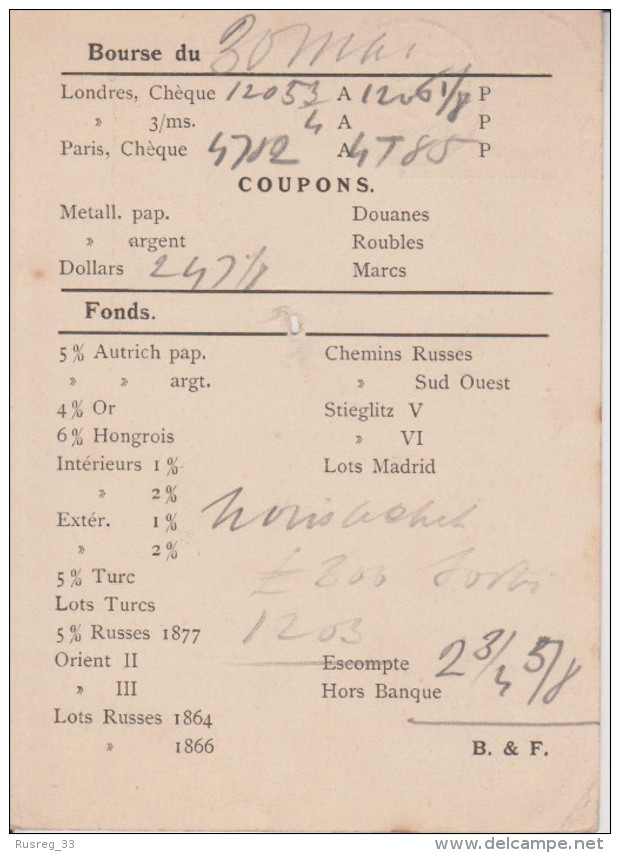 Bourse du 30 Mai
Londres, Chèque 12053 A 1206 1/8 P
» 3/ms. 4 A P
Paris, Chèque 4782 A 4785 P
COUPONS.
Metall. pap. Douanes
» argent Roubles
Dollars 247 1/8 Marcs
Fonds.
5% Autrich pap. Chemins Russes
» » argt. » Sud Ouest
4% Or Stieglitz V
6% Hongrois » VI
Intérieurs 1% Lots Madrid
» 2%
Extér. 1%
» 2%
5% Turc £ 300
Lots Turcs
5% Russes 1877 1203
Orient II Escompte 2 3/4 5/8
» III Hors Banque
Lots Russes 1864
» 1866 B. & F.
Rusreg_33
www.delcampe.net